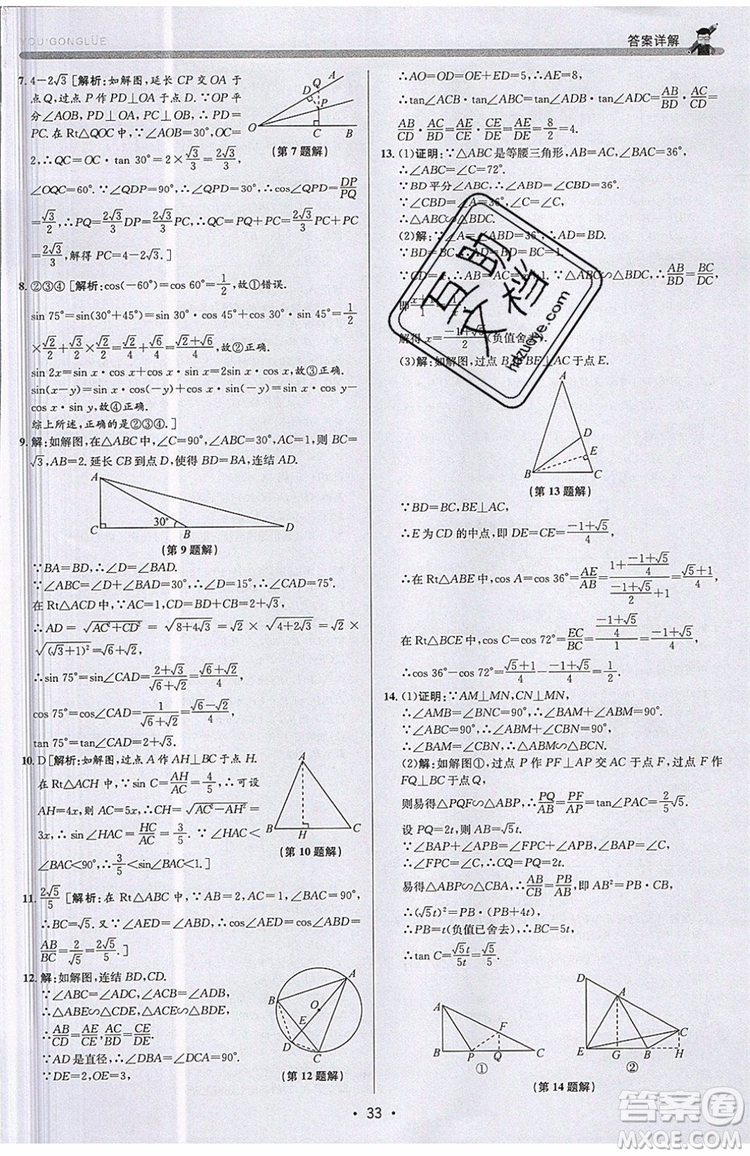 YOU·GONGLÜE
答案详解
7. 4－2√3 [解析:如解图,延长 CP 交 OA 于
点 Q,过点 P 作 PD⊥OA 于点 D. ∵OP 平
分∠AOB, PD⊥OA, PC⊥OB, ∴PD=
PC. 在 Rt△QOC 中, ∵∠AOB=30°, OC=
2, ∴QC=OC·tan 30°=2×√3/3=2√3/3,
∠OQC=60°. ∵PD⊥QA, ∴cos∠OQC=DP/PQ
=√3/2, ∴PQ=2√3/3PD=2√3/3PC, ∴QC=PQ+PC=2√3/3PC+PC=
2√3/3, 解得 PC=4－2√3.]
(第 7 题解)
8. ②③④ [解析:cos(－60°)=cos60°=1/2,故①错误.
sin 75°=sin(30°+45°)=sin 30°·cos 45°+cos 30°·sin 45°=1/2
×√2/2+√3/2×√2/2=√2/4+√6/4=(√6+√2)/4,故②正确.
sin 2x=sin x·cos x+cos x·sin x=2sin x·cos x,故③正确.
sin(x－y)=sin x·cos(－y)+cos x·sin(－y)=sin x·cos y－
cos x·sin y,故④正确.
综上所述,正确的②③④.]
9. 解:如解图,在△ABC 中,∠C=90°,∠ABC=30°,AC=1,则 BC=
√3,AB=2.延长 CB 到点 D,使得 BD=AB,连结 AD.
A
30°
C B D
(第 9 题解)
∵BA=BD, ∴∠D=∠BAD.
∵∠ABC=∠D+∠BAD=30°, ∴∠D=15°, ∴∠CAD=75°.
在 Rt△ACD 中, ∵AC=1, CD=CB+BD=2+√3,
∴AD=√(AC²+CD²)=√(8+4√3)=√2×√(4+2√3)=√2×
√((√3+1)²)=√6+√2,
∴sin 75°=sin∠CAD=(2+√3)/(√6+√2)=(√6+√2)/4,
cos 75°=cos∠CAD=1/(√6+√2)=(√6－√2)/4,
tan 75°=tan∠CAD=2+√3.
10. D [解析:如解图,过点 A 作 AH⊥BC 于点 H.
在 Rt△ACH 中, ∵sin C=AH/AC=4/5, ∴可设
AH=4x,则 AC=5x, ∴CH=√(AC²－AH²)=
3x, ∴sin∠HAC=HC/AC=3/5. ∵∠HAC<
∠BAC<90°, ∴3/5<sin∠BAC<1.]
(第 10 题解)
11. 2√5/5 [解析:在 Rt△ABC 中, ∵AB=2, AC=1, ∠BAC=90°,
∴BC=√5. ∵∠AED=∠ABC, ∴cos∠AED=cos∠ABC=
AB/BC=2/√5=2√5/5.]
12. 解:如解图,连结 BD,CD.
∵∠ABC=∠ADC, ∠BAD=∠BCD,
∴△ABE∽△CDE, △ACE∽△BDE,
∴AB/CD=BE/DE, AC/BD=CE/DE.
∵AD 是直径, ∴∠DBA=∠DCA=90°.
∵DE=2, OE=3,
(第 12 题解)
∴AO=OD=OE+ED=5, ∴AE=8,
∴tan∠ACB·tan∠ABC=tan∠ADB·tan∠ADC=AB/BD·
AC/CD=AB/CD·AC/BD=BE/DE·AE/BE=AE/DE=8/2=4.
13. (1)证明:∵△ABC 是等腰三角形,AB=AC,∠BAC=36°,
∴∠ABC=∠C=72°.
∵BD 平分∠ABC, ∴∠ABD=∠CBD=36°.
∵∠CBD=∠A=36°, ∠C=∠C,
∴△ABC∽△BDC.
(2)解:∵∠A=∠ABD=36°, ∴AD=BD.
∵BD=BC, ∴AD=BD=BC=1.
解得 x=(－1+√5)/2(负值舍去).
(3)解:如解图,过点 B 作 BE⊥AC 于点 E.
A
D
E
B C
(第 13 题解)
∵BD=BC, BE⊥AC,
∴E 为 CD 的中点,即 DE=CE=(－1+√5)/4,
∴在 Rt△ABE 中,cos A=cos 36°=AE/AB=((－1+√5)/4+1)/((－1+√5)/2+1)=(√5+1)/4.
在 Rt△BCE 中,cos C=cos 72°=EC/BC=((－1+√5)/4)/1=(－1+√5)/4,
∴cos 36°－cos 72°=(√5+1)/4－(－1+√5)/4=1/2.
14. (1)证明:∵AM⊥MN, CN⊥MN,
∴∠AMB=∠BNC=90°, ∴∠BAM+∠ABM=90°.
∵∠ABC=90°, ∴∠ABM+∠CBN=90°,
∴∠BAM=∠CBN, ∴△ABM∽△BCN.
(2)解:如解图①,过点 P 作 PF⊥AP 交 AC 于点 F,过点 F 作
FQ⊥BC 于点 Q,
则易得△PQF∽△ABP, ∴PQ/AB=FQ/PB=PF/AP=tan∠PAC=2√5/5.
设 PQ=2t,则 AB=√5t.
∵∠BAP+∠APB=∠FPC+∠APB=90°, ∴∠BAP=∠FPC.
∵∠BAP=∠C, ∴∠FPC=∠C, ∴PF=CF, ∴CQ=PQ=2t.
易得△ABP∽△CBA, ∴AB/CB=PB/AB, ∴√5t/(PB+4t)=PB/√5t,
∴PB=t(负值已舍去), ∴BC=5t,
∴tan C=√5t/5t=√5/5.
A
F
B P Q C
①
D
A
C
E G B H
②
(第 14 题解)
· 33 ·
互助文档
hdzuoye.com
答案圈
MXQE.COM